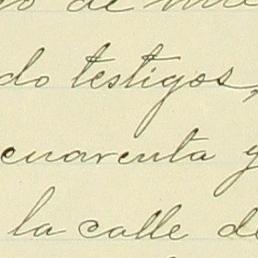 de mil
do testigos,
cuarenta y
la calle de